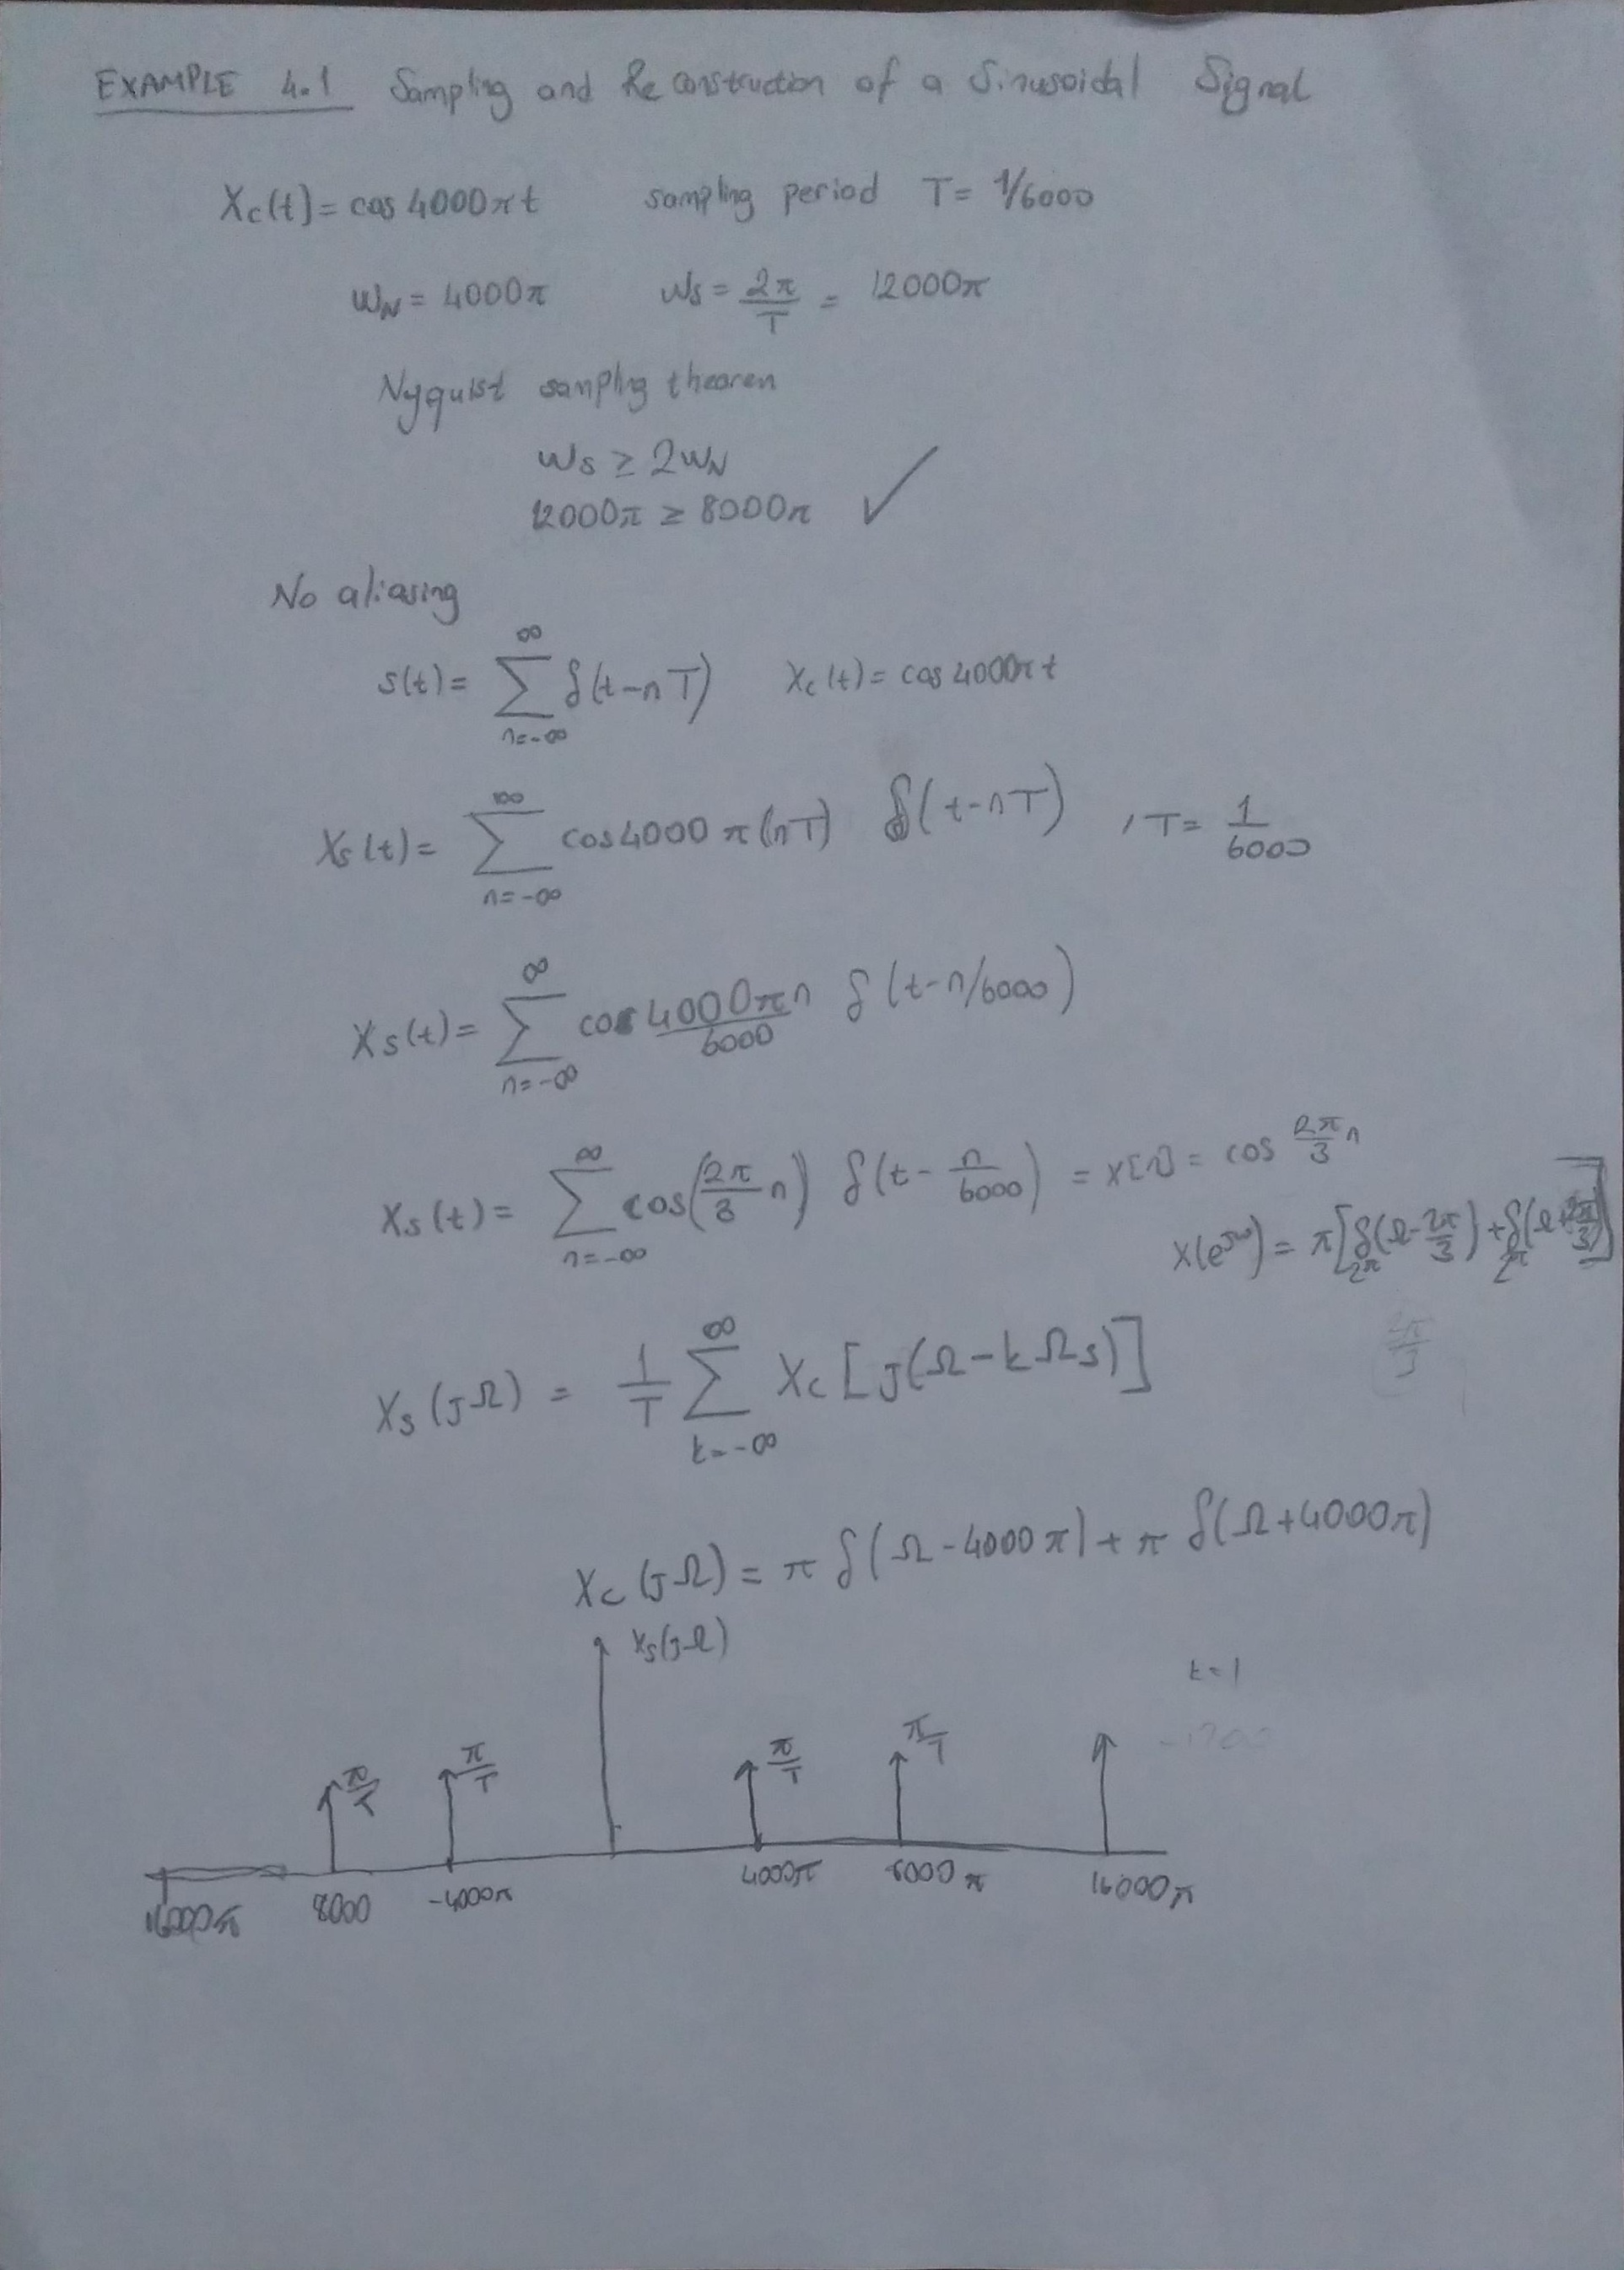 EXAMPLE 4.1 Sampling and Reconstruction of a Sinusoidal Signal
Xc(t) = cos 4000πt sampling period T = 1/6000
ωN = 4000π ωs = 2π/T = 12000π
Nyquist sampling theorem
ωs ≥ 2ωN
12000π ≥ 8000π ✓
No aliasing
s(t) = ∑_{n=-∞}^{∞} δ(t-nT) Xc(t) = cos 4000πt
Xs(t) = ∑_{n=-∞}^{∞} cos 4000π(nT) δ(t-nT) , T = 1/6000
Xs(t) = ∑_{n=-∞}^{∞} cos 4000πn/6000 δ(t-n/6000)
Xs(t) = ∑_{n=-∞}^{∞} cos(2π/3 n) δ(t - n/6000) = x[n] = cos 2π/3 n
X(e^{jω}) = π[δ_{2π}(Ω - 2π/3) + δ_{2π}(Ω + 2π/3)]
Xs(jΩ) = 1/T ∑_{k=-∞}^{∞} Xc[j(Ω - kΩs)]
Xc(jΩ) = πδ(Ω - 4000π) + πδ(Ω + 4000π)
Xs(jΩ)
k=1
π/T π/T π/T π/T
16000π 8000 -4000π 4000π 8000π 16000π